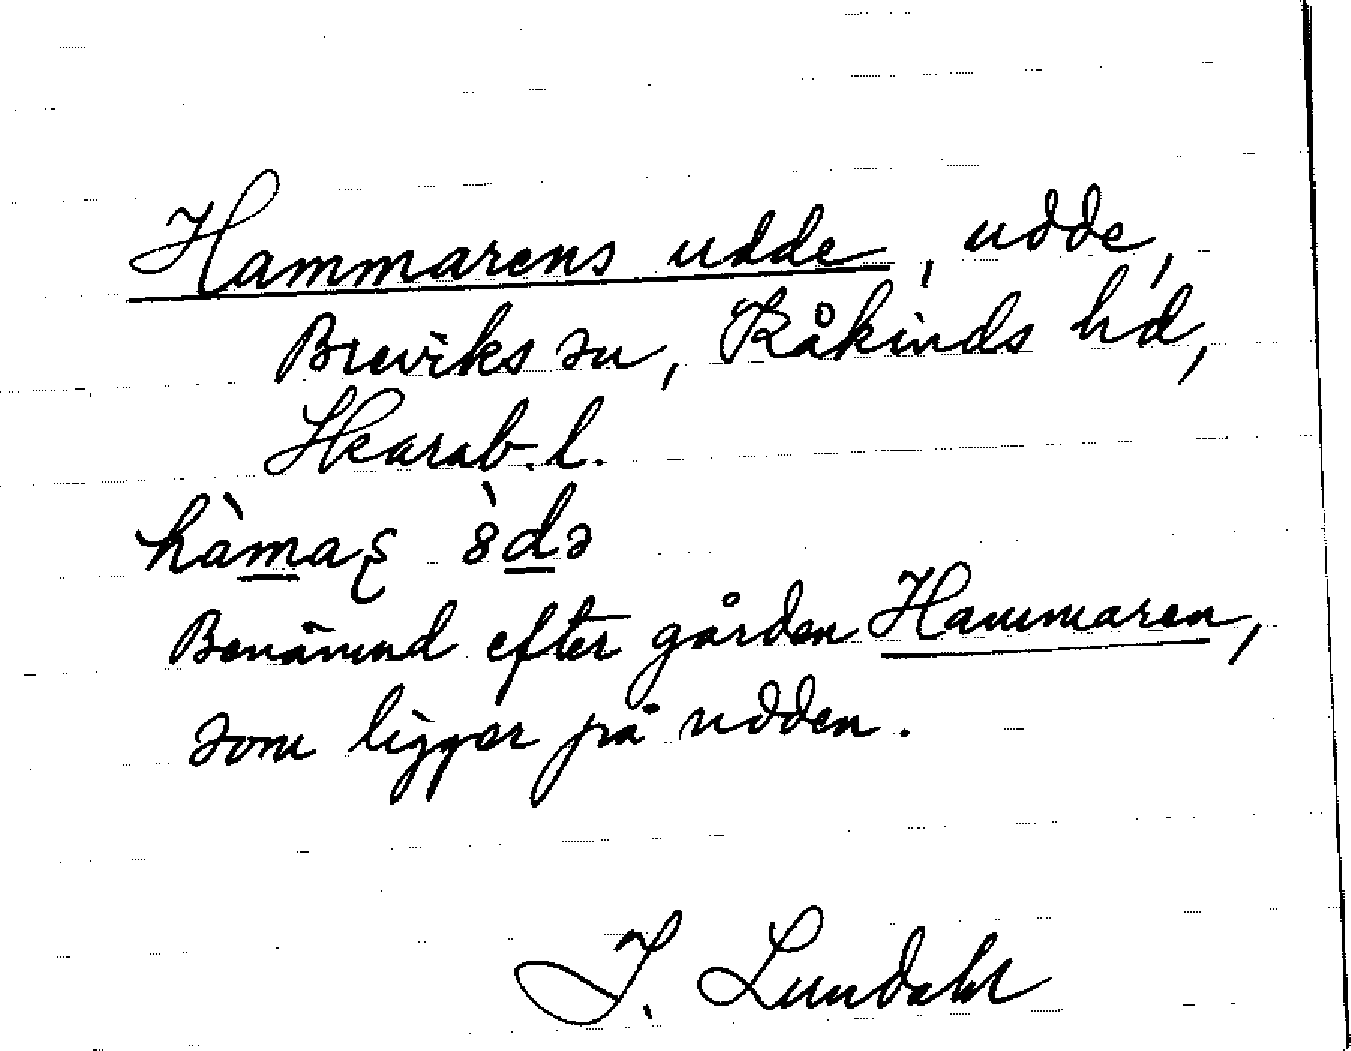 Hammarens udde, udde,
Breviks sn, Kåkinds hd,
Skarab. l.
hàmaʂ
Benämnd efter gården Hammaren,
som ligger på udden.
I. Lundahl